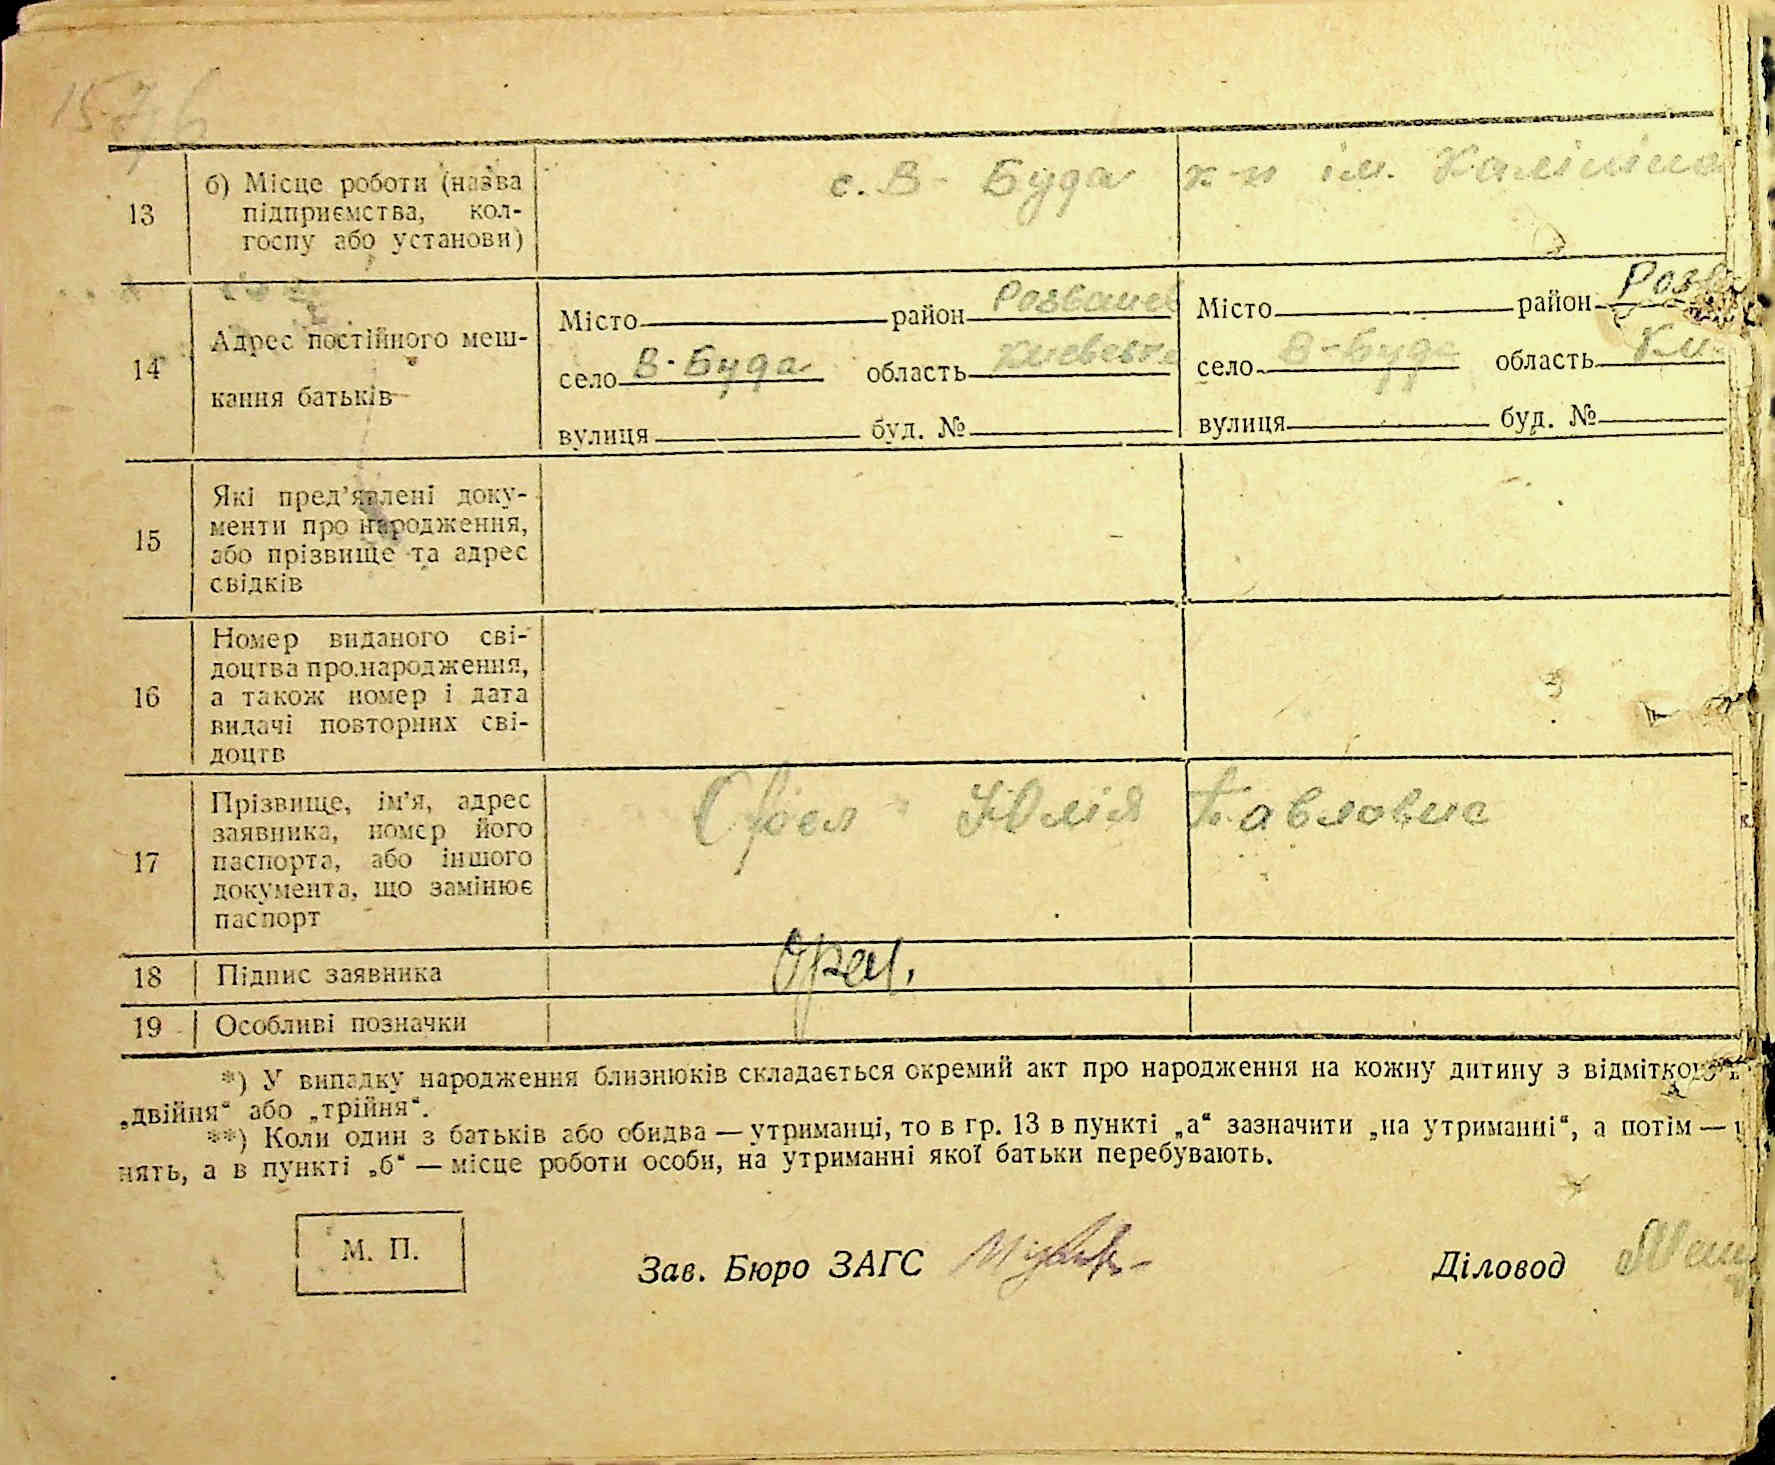 1576
13
б) Місце роботи (назва
підприємства, кол-
госпу або установи)
с. В - Буда к-п ім. Калініна
14
Адрес постійного меш-
кання батьків
Місто район Розважев
село В-Буда область Киевська
вулиця буд. №
Місто район Розва
село В-Буда область Ки
вулиця буд. №
15
Які пред’явлені доку-
менти про народження,
або прізвище та адрес
свідків
16
Номер виданого сві-
доцтва про народження,
а також номер і дата
видачі повторних сві-
доцтв
17
Прізвище, ім’я, адрес
заявника, номер його
паспорта, або іншого
документа, що замінює
паспорт
Орел Юлія Павловна
18 Підпис заявника
Орел.
19 Особливі позначки
*) У випадку народження близнюків складається окремий акт про народження на кожну дитину з відміткою
„двійня“ або „трійня“.
**) Коли один з батьків або обидва — утриманці, то в гр. 13 в пункті „а“ зазначити „на утриманні“, а потім —
нять, а в пункті „б“ — місце роботи особи, на утриманні якої батьки перебувають.
М. П.
Зав. Бюро ЗАГС
Діловод